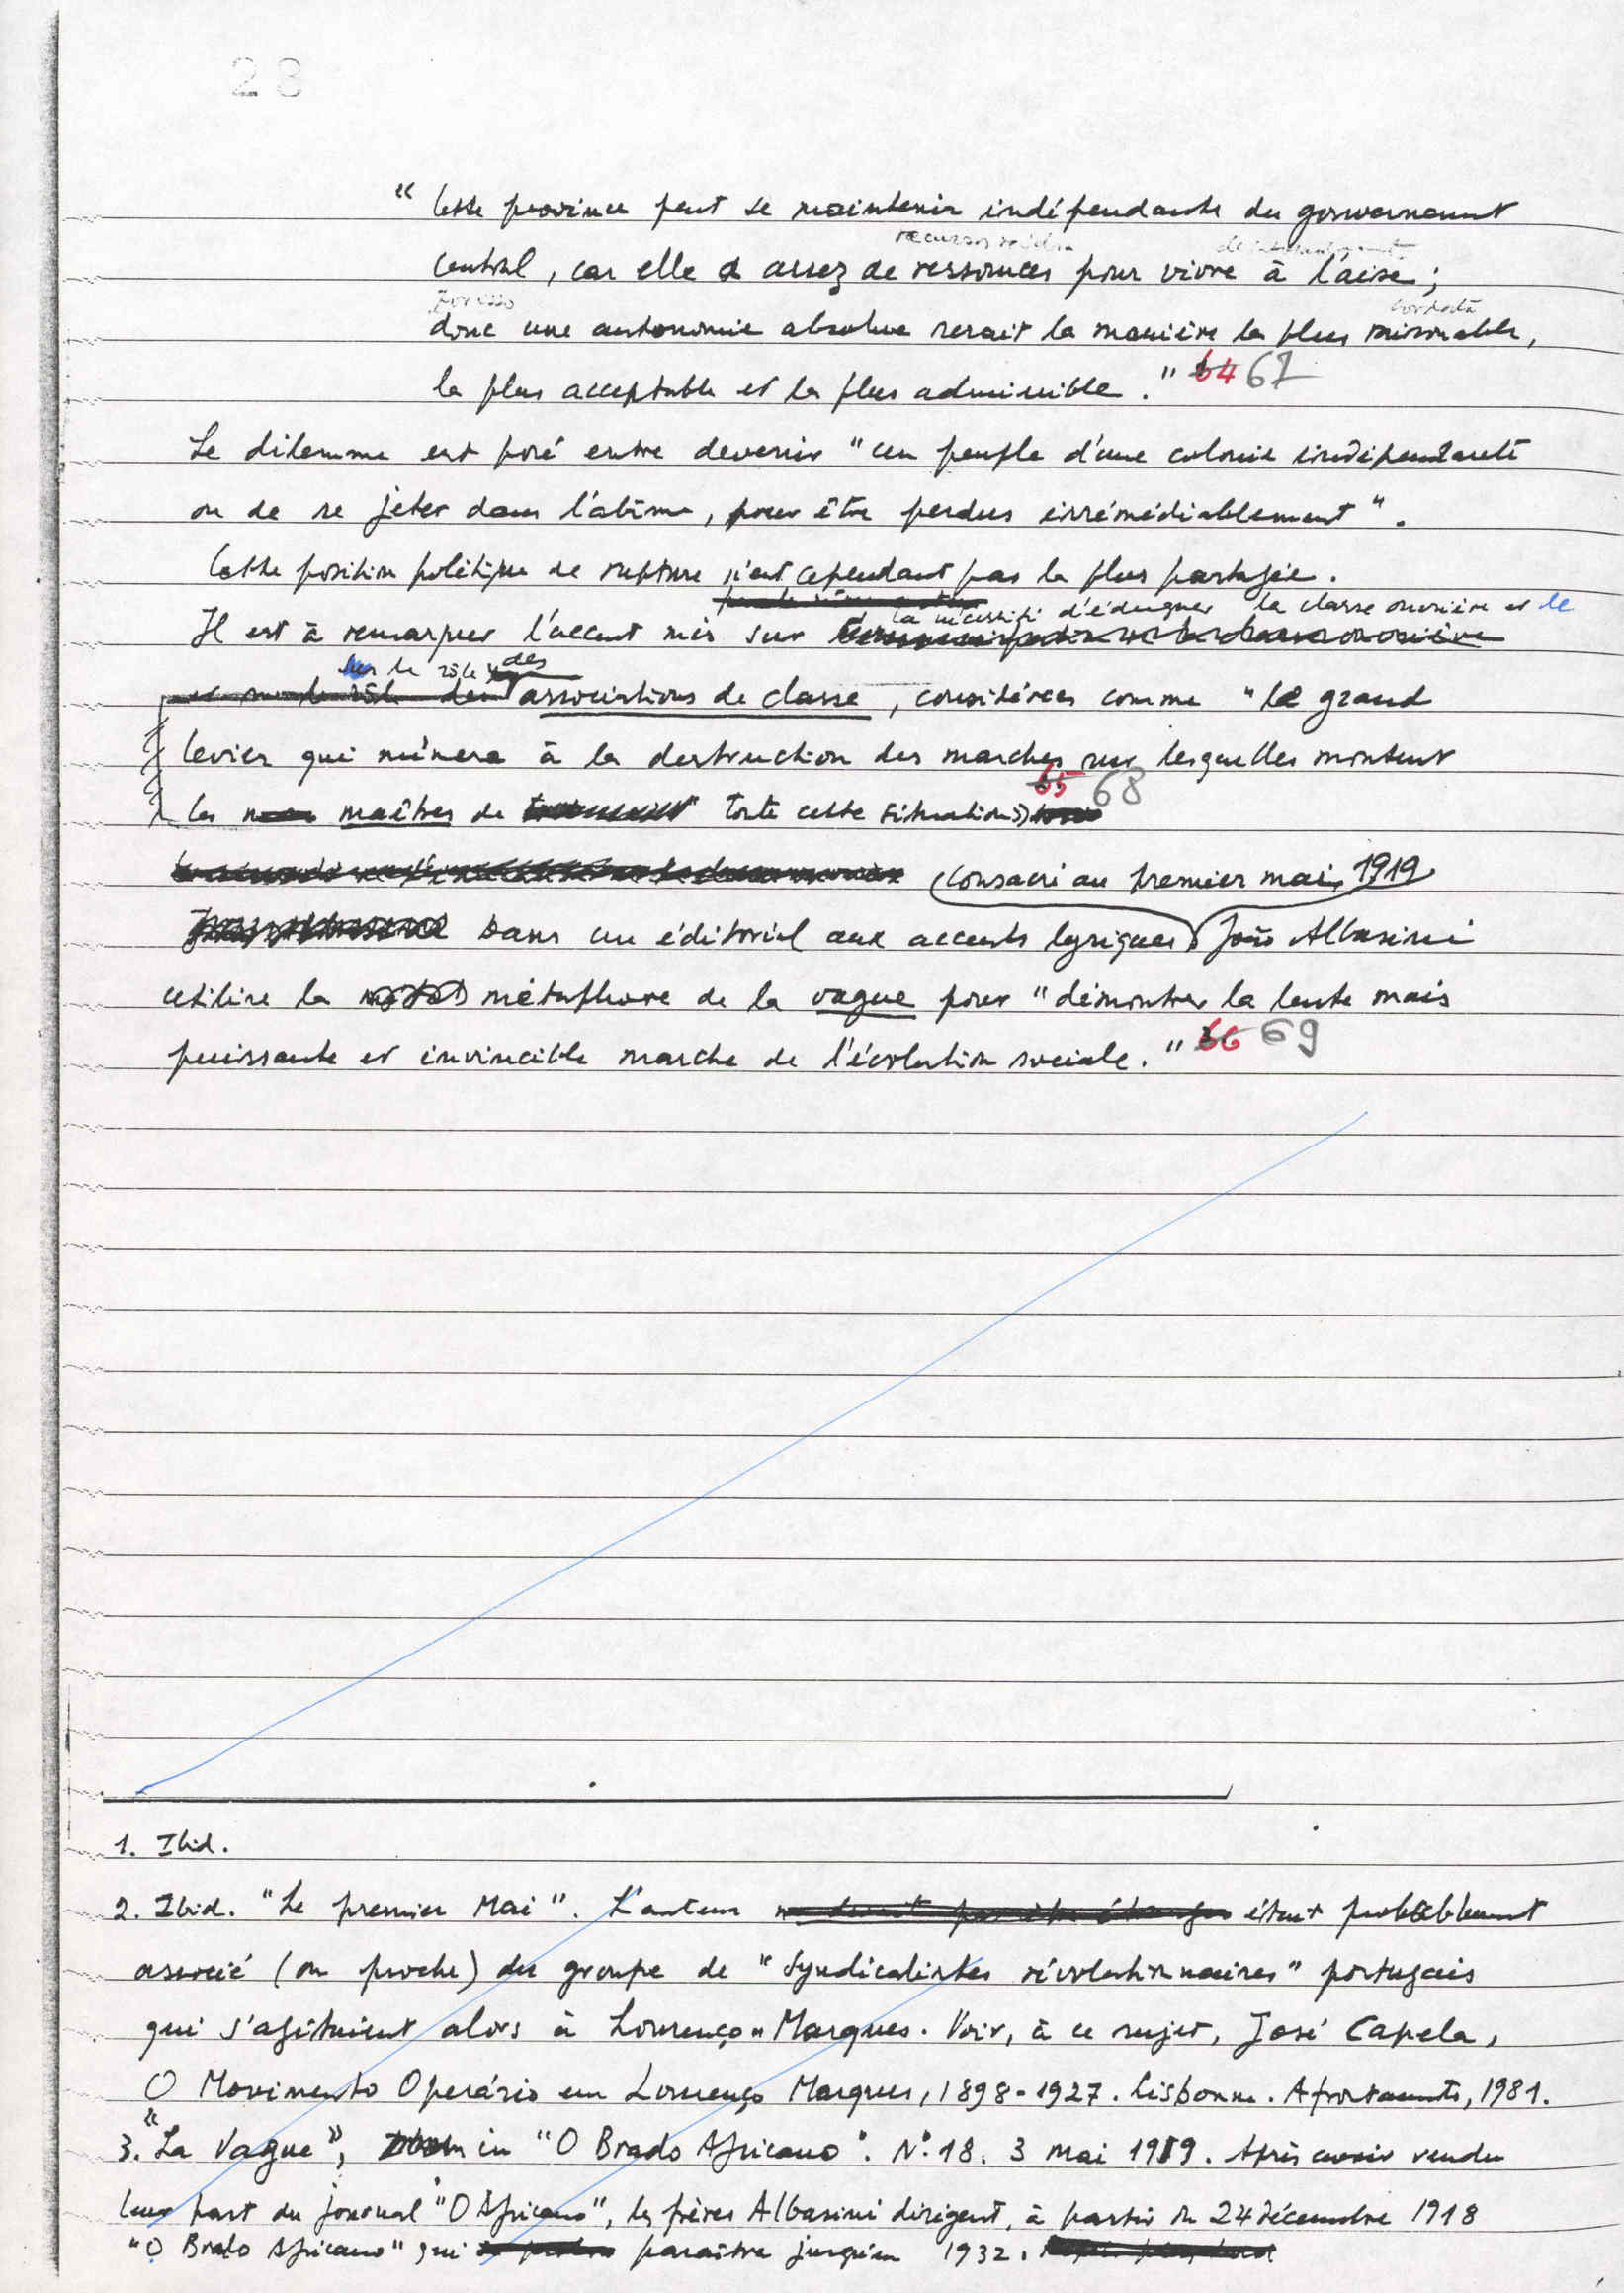 28
" Cette province peut se maintenir indépendante du gouvernement
central, car elle a assez de ressources pour vivre à l'aise ;
por isso
donc une autonomie absolue serait la manière la plus raisonnable,
la plus acceptable et la plus admissible . " 64 67
Le dilemme est posé entre devenir " un peuple d'une colonie indépendante
ou de se jeter dans l'abîme, pour être perdus irrémédiablement " .
Cette position politique de rupture n'est cependant pas la plus partagée .
la nécessité d'éduquer la classe ouvrière et le
Il est à remarquer l'accent mis sur
sur le rôle des
associations de classe , considérées comme " le grand
levier qui mènera à la destruction des marches sur lesquelles montent
65 68
les maîtres de toute cette situation »
(consacré au premier mai, 1919
Dans un éditorial aux accents lyriques João Albasini
utilise la métaphore de la vague pour " démontrer la lente mais
puissante et invincible marche de l'évolution sociale . " 66 69
1. Ibid .
2. Ibid. " Le premier Mai " . L'auteur étant probablement
associé (ou proche) du groupe de " syndicalistes révolutionnaires " portugais
qui s'agitaient alors à Lourenço Marques . Voir, à ce sujet, José Capela,
O Movimento Operário em Lourenço Marques, 1898-1927 . Lisbonne . Afrontamento, 1981.
3. "La Vague", in "O Brado Africano" . Nº 18. 3 mai 1919 . Après avoir vendu
leur part du journal "O Africano", les frères Albasini dirigent, à partir du 24 décembre 1918
"O Brado Africano" qui paraîtra jusqu'en 1932 .